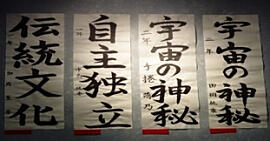 宇宙の神秘
二年
宇宙の神秘
二年
自主独立
一年
伝統文化